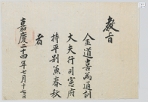 教旨
金道喜爲通訓
大夫行司憲府
持平別兼春秋
者
嘉慶二十四年七月十